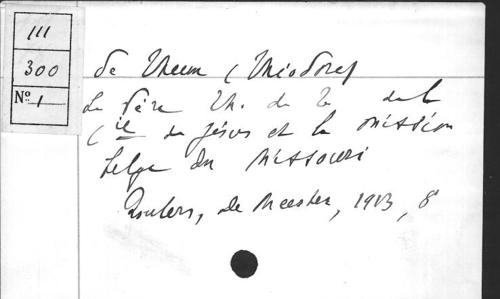 III
300
No 1
de Theux (Théodore)
Le Père Th. de T. de la
Cie de Jésus et la Mission
belge du Missouri
Roulers, De Meester, 1913, 8°